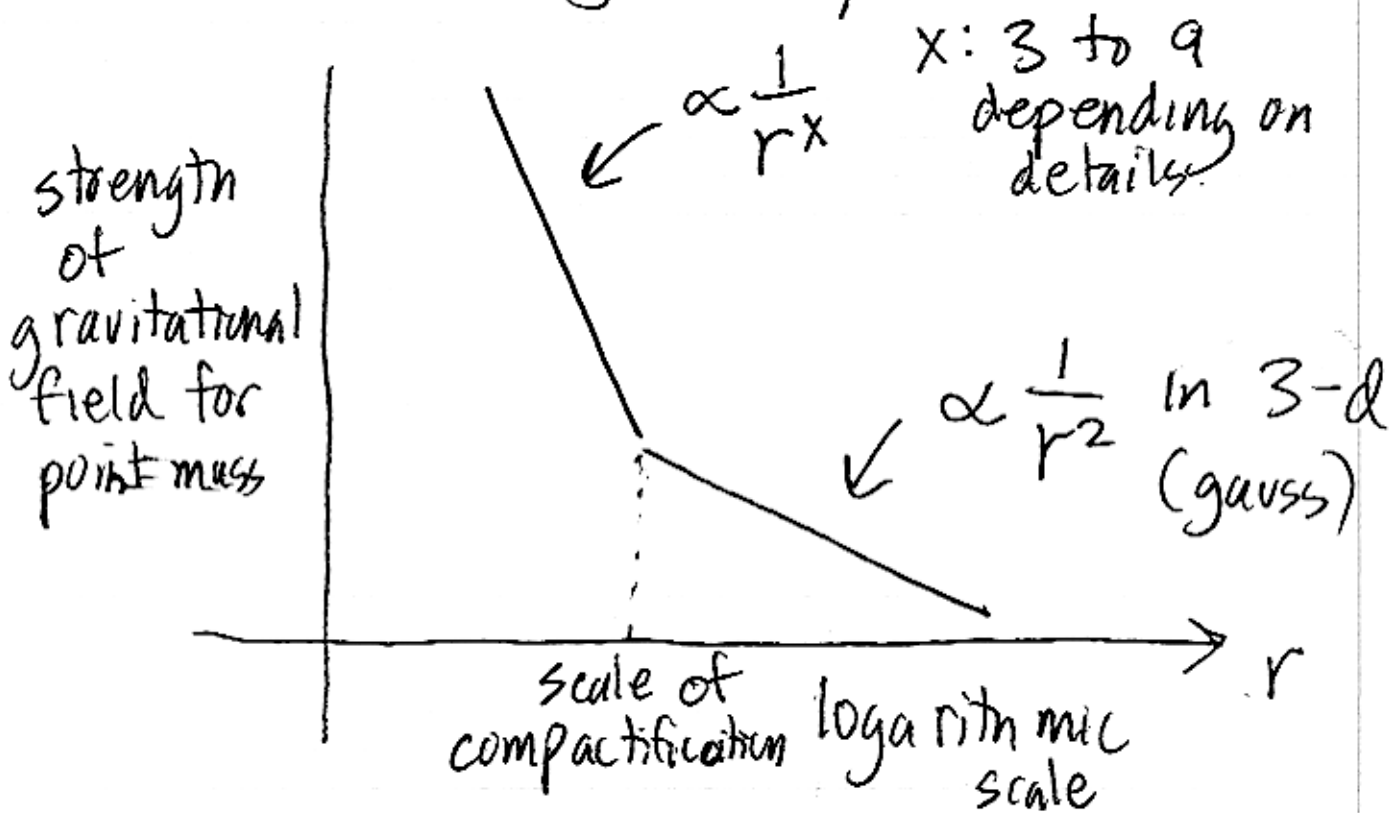 x: 3 to 9
depending on
details.
∝ 1/r^x
strength
of
gravitational
field for
point mass
∝ 1/r^2 in 3-d
(gauss)
r
scale of
compactification
logarithmic
scale